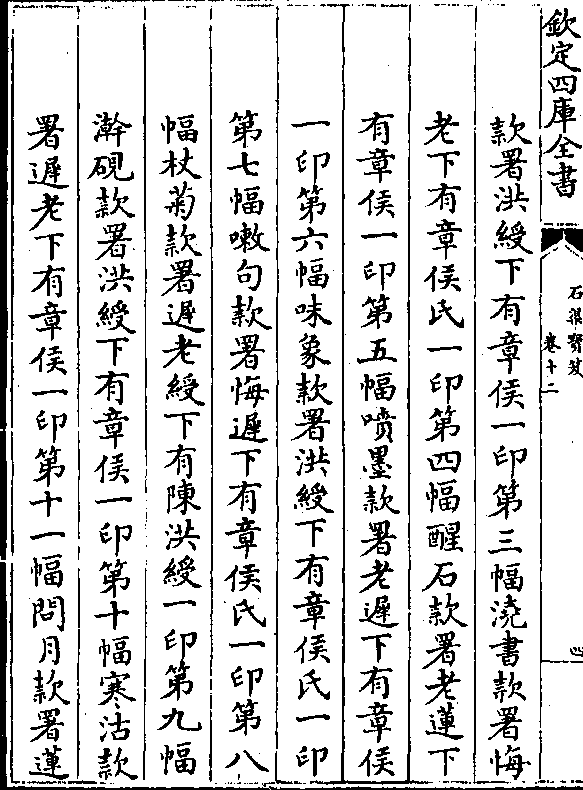 欽定四庫全書
石渠寳笈
卷十二
四
款署洪綬下有章侯一印第三幅澆書款署悔
老下有章侯氏一印第四幅醒石款署老蓮下
有章侯一印第五幅噴墨款署老遲下有章侯
一印第六幅味象款署洪綬下有章侯氏一印
第七幅嗽句款署悔遲下有章侯氏一印第八
幅杖菊款署遲老綬下有陳洪綬一印第九幅
澣硯款署洪綬下有章侯一印第十幅寒沽款
署遲老下有章侯一印第十一幅問月款署蓮